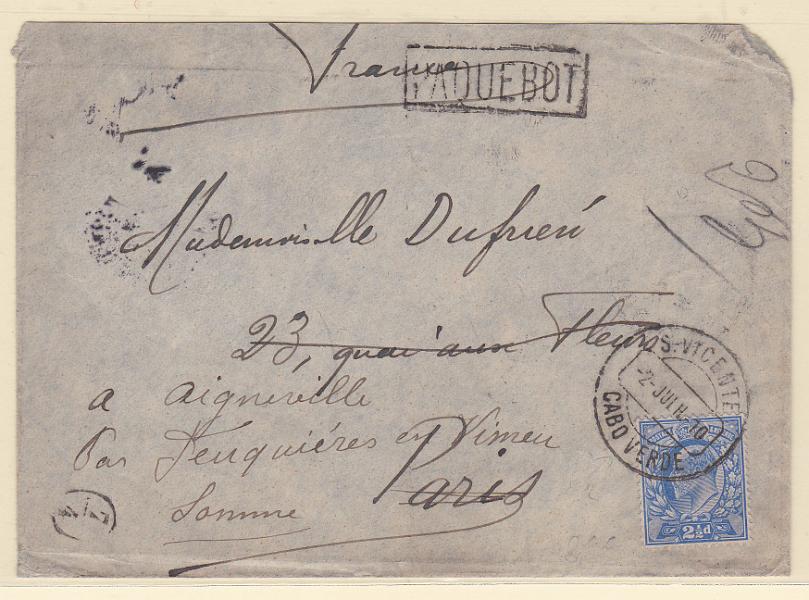 France
PAQUEBOT
Mademoiselle Dufrien
23, quai aux Fleurs
S. VICENTE
2 JUL 10
CABO VERDE
a Aigneville
Par Feuquiéres en Vimeu
Paris
Somme
2½d